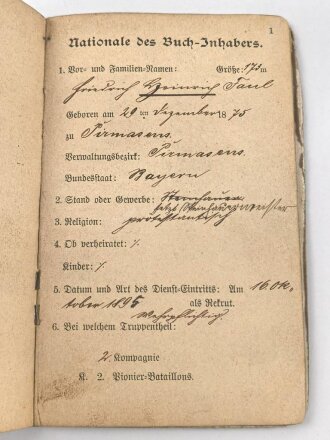 1
Nationale des Buch-Inhabers.
1. Vor- und Familien-Namen: Größe: 1,75 m
Friedrich Heinrich Paul
Geboren am 29 ten Dezember 1875
zu Pirmasens.
Verwaltungsbezirk: Pirmasens.
Bundesstaat: Bayern
2. Stand oder Gewerbe: Steinhauer
jetzt Steinhauermeister
3. Religion: protestantisch
4. Ob verheiratet: /.
Kinder: /.
5. Datum und Art des Dienst-Eintritts: Am 16 Ok-
tober 1895 als Rekrut.
Wehrpflichtig
6. Bei welchem Truppentheil:
2. Kompagnie
K. 2. Pionier-Bataillons.